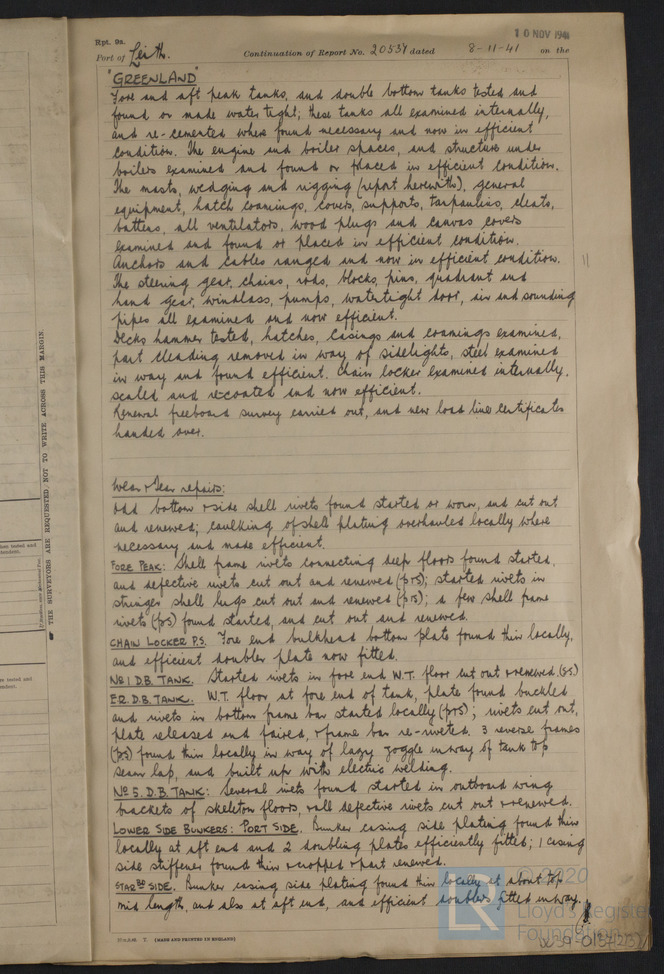 10 NOV 1941
Rpt. 9a.
Port of Leith. Continuation of Report No. 20537 dated 8-11-41 on the
"GREENLAND"
Fore and aft peak tanks, and double bottom tanks tested and
found or made water tight; these tanks all examined internally,
and re-cemented where found necessary and now in efficient
condition. The engine and boiler spaces, and structure under
boilers examined and found or placed in efficient condition.
The masts, wedging and rigging (report herewith), general
equipment, hatch coamings, covers, supports, tarpaulins, cleats,
battens, all ventilators, wood plugs and canvas covers
examined and found or placed in efficient condition.
Anchors and cables ranged and now in efficient condition.
The steering gear, chains, rods, blocks, pins, quadrant and
hand gear, windlass, pumps, watertight door, air and sounding
pipes all examined and now efficient.
Decks hammer tested, hatches, casings and coamings examined,
part cleading removed in way of sidelights, steel examined
in way and found efficient. Chain locker examined internally,
scaled and re-coated and now efficient.
Renewal freeboard survey carried out, and new load line certificates
handed over.
Wear & Tear repairs:
Odd bottom & side shell rivets found started or worn, and cut out
and renewed; caulking of shell plating overhauled locally where
necessary and made efficient.
FORE PEAK: Shell frame rivets connecting deep floors found started,
and defective rivets cut out and renewed (p&s); started rivets in
stringer shell lugs cut out and renewed (p&s); a few shell frame
rivets (p&s) found started, and cut out and renewed.
CHAIN LOCKER P.S. Fore end bulkhead bottom plate found thin locally,
and efficient doubler plate now fitted.
No 1 D.B. TANK. Started rivets in fore end W.T. floor cut out & renewed. (s.s.)
E.R. D.B. TANK. W.T. floor at fore end of tank, plate found buckled
and rivets in bottom frame bar started locally (p&s); rivets cut out,
plate released and faired, & frame bar re-riveted. 3 reverse frames
(p.s) found thin locally in way of lazy joggle inway of tank top
seam lap, and built up with electric welding.
No 5. D.B. TANK: Several rivets found started in outboard wing
brackets of skeleton floors, & all defective rivets cut out & renewed.
LOWER SIDE BUNKERS: PORT SIDE. Bunker casing side plating found thin
locally at aft end and 2 doubling plates efficiently fitted; 1 casing
side stiffener found thin & cropped & part renewed.
STARBD SIDE. Bunker casing side plating found thin locally at about top
mid length, and also at aft end, and efficient doublers fitted inway.
(MADE AND PRINTED IN ENGLAND)
THE SURVEYORS ARE REQUESTED NOT TO WRITE ACROSS THIS MARGIN.
© 2020
LR
Lloyd's Register
Foundation